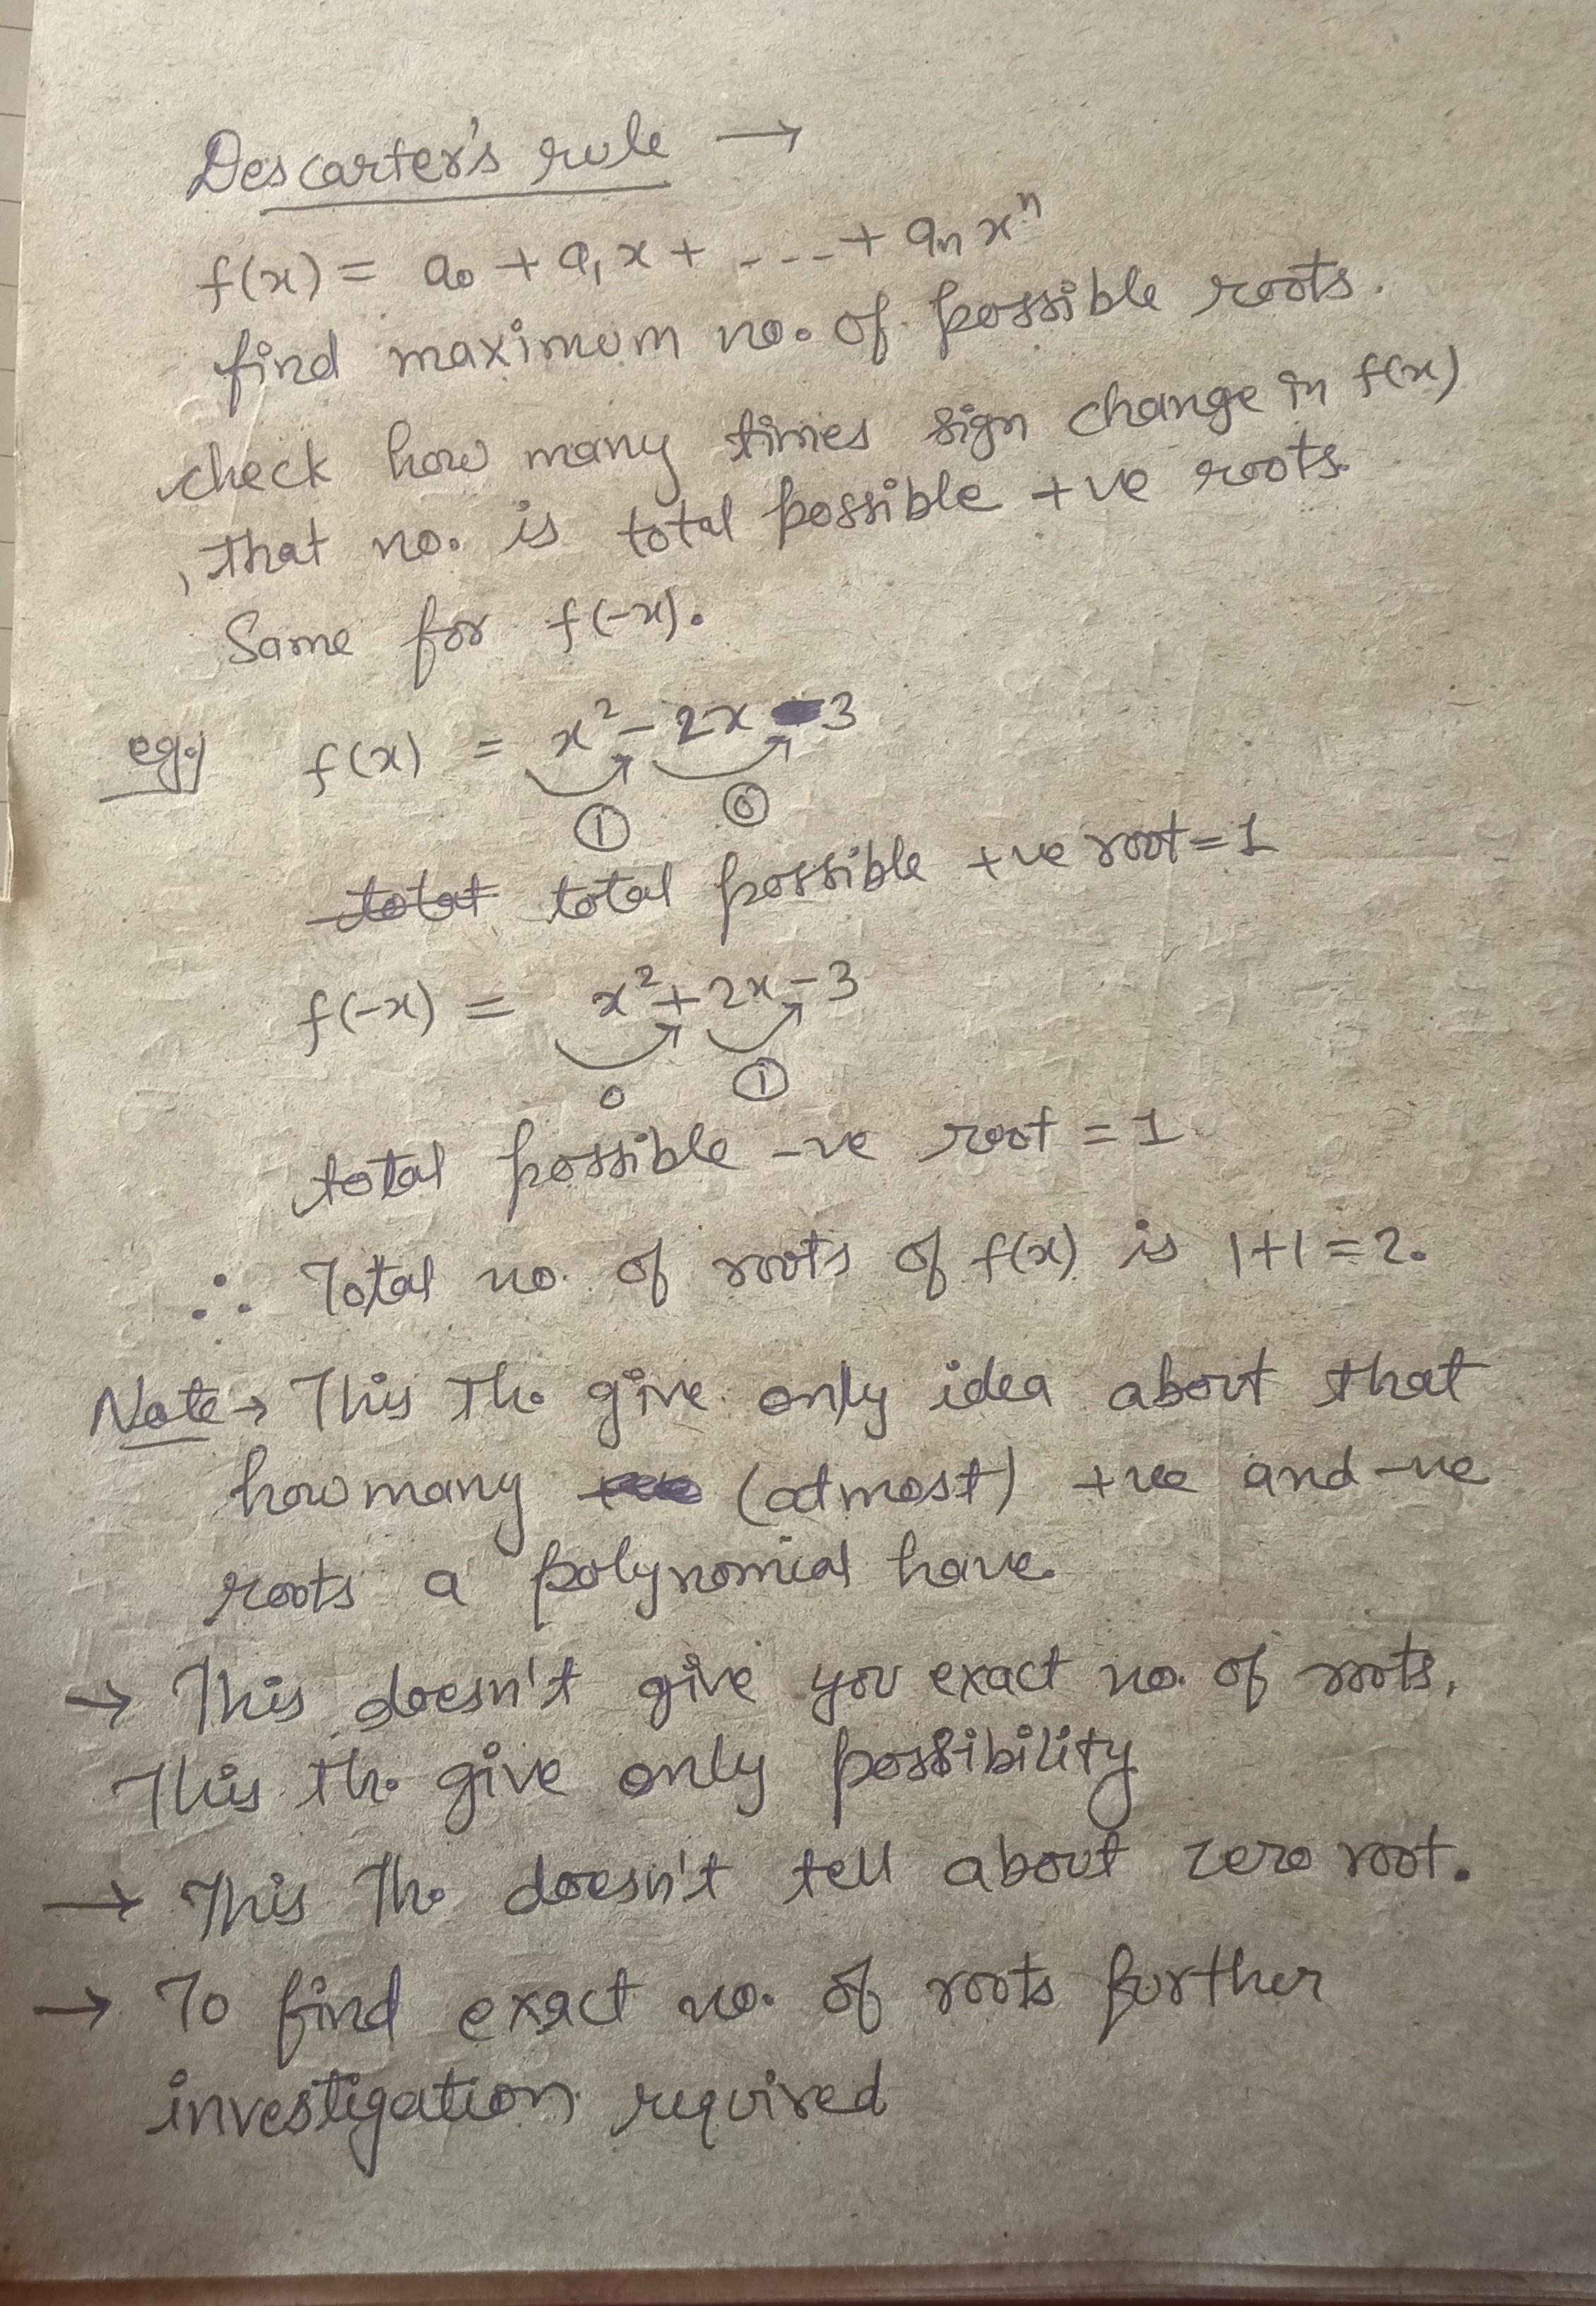 Descarter's rule →
f(x) = a₀ + a₁x + ---- + aₙxⁿ
find maximum no. of possible roots.
check how many times sign change in f(x)
, that no. is total possible +ve roots.
Same for f(-x).
eg:) f(x) = x² - 2x - 3
① ⓪
total possible +ve root = 1
f(-x) = x² + 2x - 3
0 ①
total possible -ve root = 1
∴ Total no. of roots of f(x) is 1+1 = 2.
Note → This Th. give only idea about that
how many (atmost) +ve and -ve
roots a polynomial have.
→ This doesn't give you exact no. of roots.
This th. give only possibility
→ This Th. doesn't tell about zero root.
→ To find exact no. of roots further
investigation required